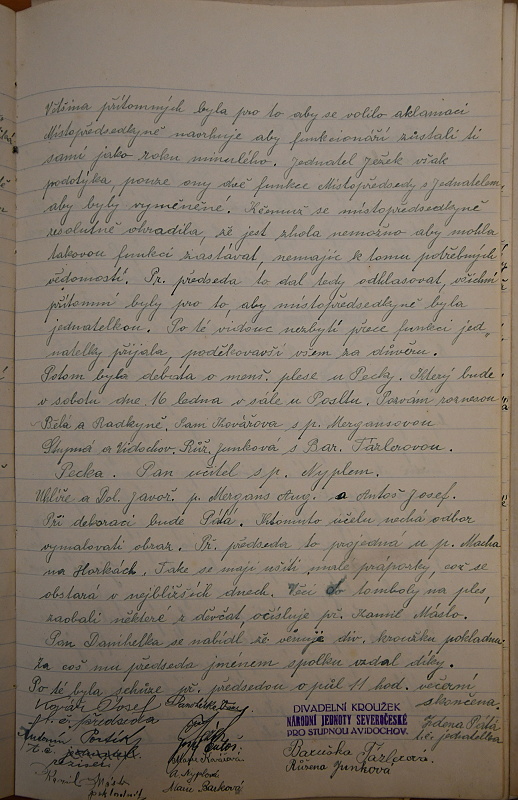 Většina přítomných byla pro to aby se volilo aklamací
Místopředsedkyně navrhuje aby funkcionáři zůstali ti
samí jako roku minulého. Jednatel Ježek však
podotýká, pouze ony dvě funkce Místopředsedy s Jednatelem,
aby byly vyměněné. K čemuž se místopředsedkyně
resolutně ohradila, že jest zhola nemožno aby mohla
takovou funkci zastávat, nemajíc k tomu potřebných
vědomostí. Př. předseda to dal tedy odhlasovat, všichni
přítomní byly pro to aby místopředsedkyně byla
jednatelkou. Po té vidouc nezbytí přece funkci jed„
natelky přijala, poděkovavši všem za důvěru.
Potom byla debata o menš. plese u Pecky. Který bude
v sobotu dne 16 ledna v sále u Posltu. Pozvání roznesou
Bělá a Radkyně, Sam Kovářova s p. Mergansovou
Stupná a Vidochov, Růž. Junková s Bar. Fazlerovou.
Pecka. Pan učitel s p. Nyplem.
Uhlíře a Dol. Javoř. p. Mergans Aug. a Antoš Josef.
Při dekoraci bude Pátá. K tomuto účelu nechá odbor
vymalovati obraz. Př. předseda to projedná u p. Macha
na Horkách. Take se mají ušíti malé práporky, což se
obstará v nejbližších dnech. Věci do tomboly na ples,
zaobalí některé z děvčat, očísluje př. Kamil Máslo.
Pan Danihelka se nabídl že věnuje div. kroužku pokladnu.
Za což mu předseda jménem spolku vzdal díky.
Po té byla schůze př. předsedou o půl 11 hod. večerní
skončena.
Kovář Josef
t. č. předseda
DIVADELNÍ KROUŽEK
NÁRODNÍ JEDNOTY SEVEROČESKÉ
PRO STUPNOU A VIDOCHOV.
Zdena Pátá
t. č. jednatelka
Josef Antoš.
Marie Kovářová
A. Nyplová
Marie Barková
Baruška Fazlerová
Růžena Junková
Kamil Máslo
pokladník